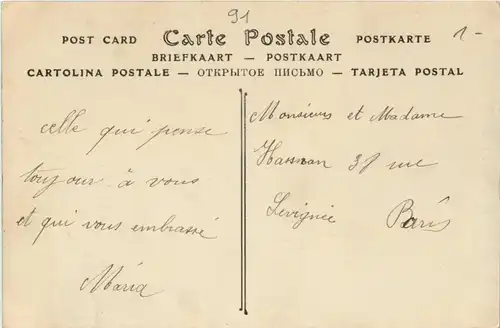 91
1-
POST CARD Carte Postale POSTKARTE
BRIEFKAART — POSTKAART
CARTOLINA POSTALE — ОТКРЫТОЕ ПИСЬМО — TARJETA POSTAL
celle qui pense
toujour à vous
et qui vous embrasse
Maria
Monsieur et Madame
rue
Paris